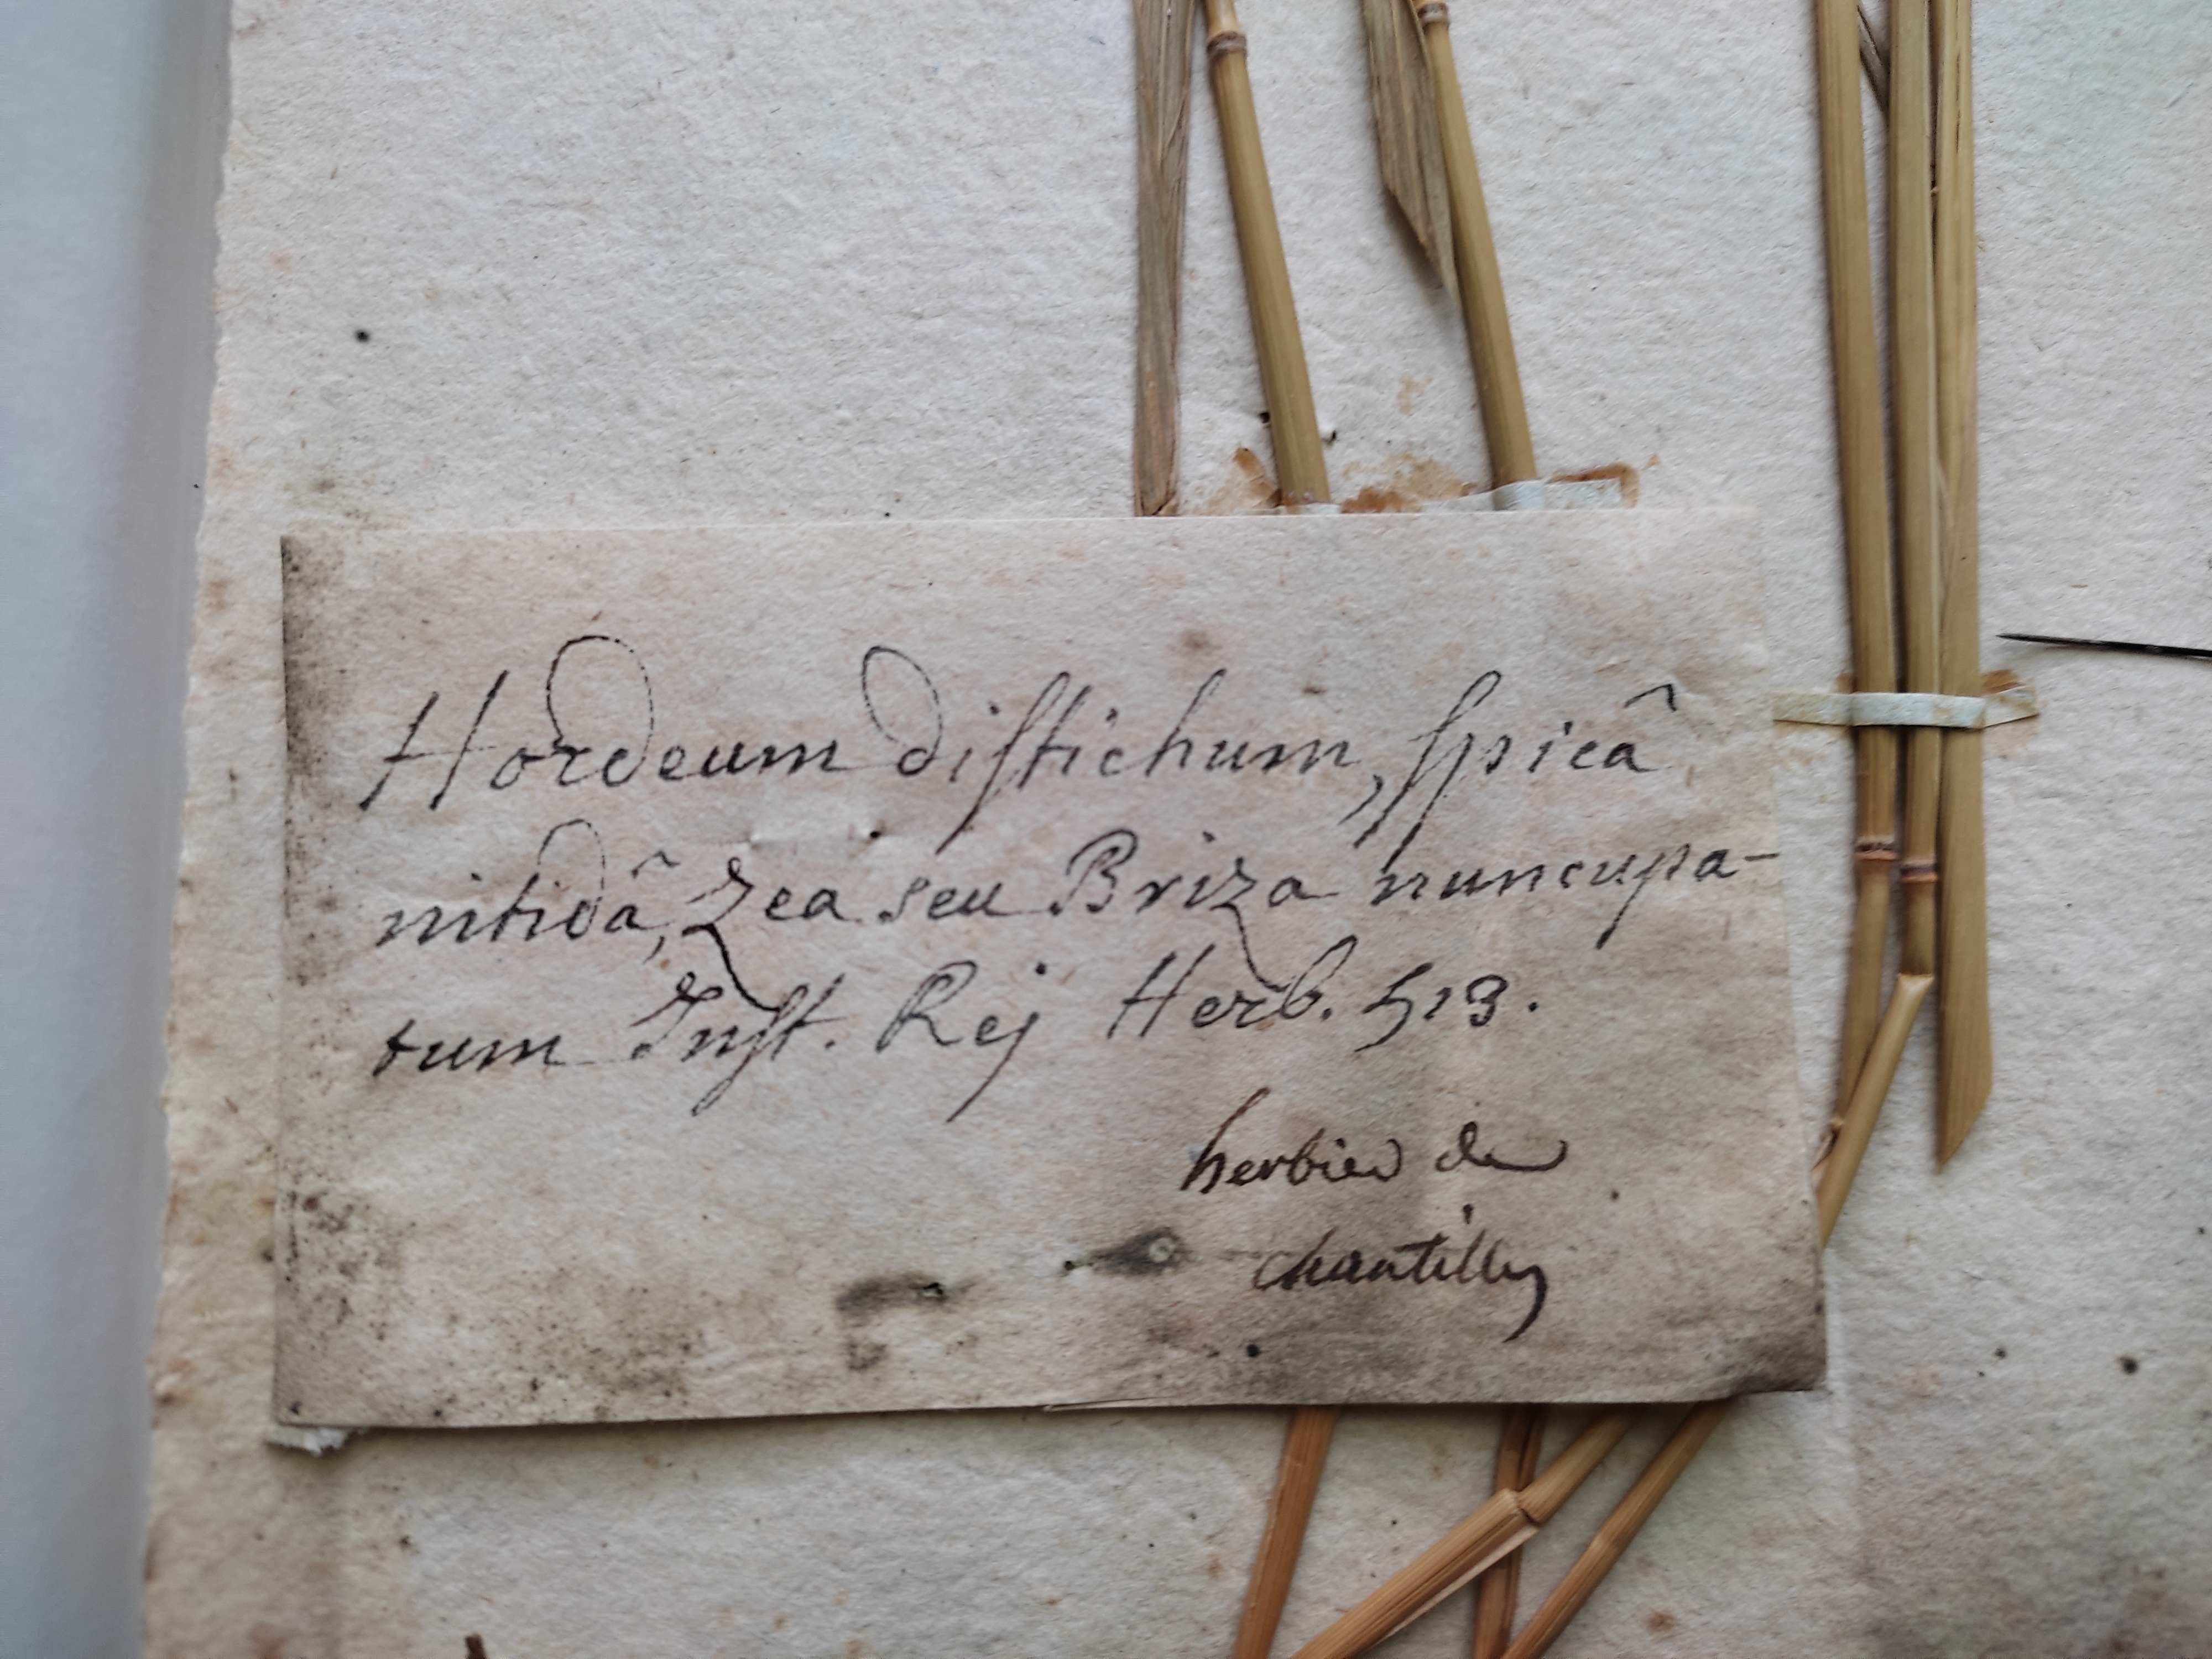 Hordeum distichum, spicâ
nitidâ, Zea seu Briza nuncupa-
tum Inst. Rej Herb. 513.
herbier de
chantilly